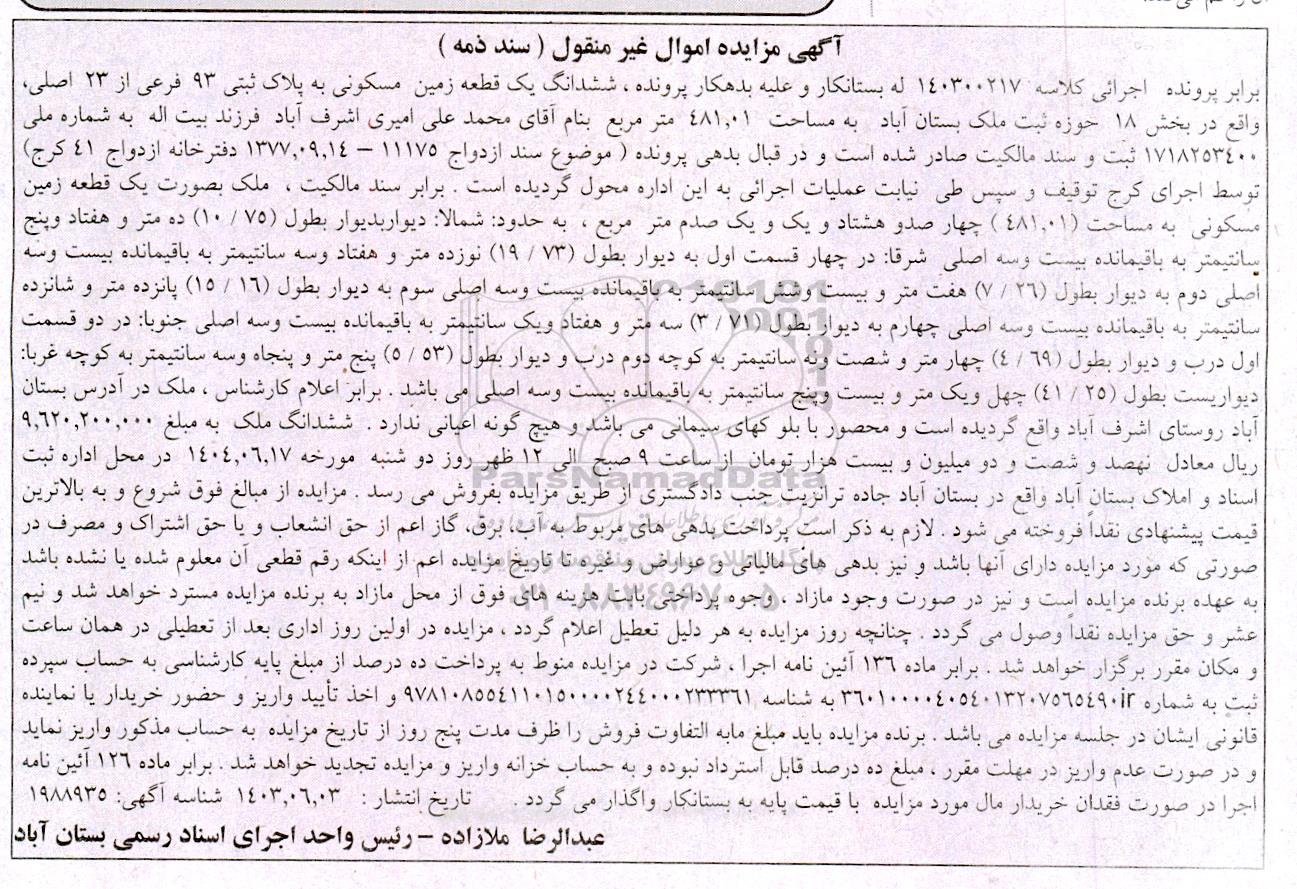 آگهی مزایده اموال غیر منقول ( سند ذمه )
برابر پرونده اجرائی کلاسه ۱۴۰۳۰۰۲۱۷ له بستانکار و علیه بدهکار پرونده ، ششدانگ یک قطعه زمین مسکونی به پلاک ثبتی ۹۳ فرعی از ۲۳ اصلی،
واقع در بخش ۱۸ حوزه ثبت ملک بستان آباد به مساحت ۴۸۱,۰۱ متر مربع بنام آقای محمد علی امیری اشرف آباد فرزند بیت اله به شماره ملی
۱۷۱۸۲۵۳۴۰۰ ثبت و سند مالکیت صادر شده است و در قبال بدهی پرونده ( موضوع سند ازدواج ۱۱۱۷۵ – ۱۳۷۷,۰۹,۱۴ دفترخانه ازدواج ۴۱ کرج)
توسط اجرای کرج توقیف و سپس طی نیابت عملیات اجرائی به این اداره محول گردیده است . برابر سند مالکیت ، ملک بصورت یک قطعه زمین
مسکونی به مساحت (۴۸۱,۰۱ ) چهار صدو هشتاد و یک و یک صدم متر مربع ، به حدود: شمالا: دیواربدیوار بطول (۷۵ / ۱۰) ده متر و هفتاد وپنج
سانتیمتر به باقیمانده بیست وسه اصلی شرقا: در چهار قسمت اول به دیوار بطول (۷۳ / ۱۹) نوزده متر و هفتاد وسه سانتیمتر به باقیمانده بیست وسه
اصلی دوم به دیوار بطول (۲۶ / ۷) هفت متر و بیست وشش سانتیمتر به باقیمانده بیست وسه اصلی سوم به دیوار بطول (۱۶ / ۱۵) پانزده متر و شانزده
سانتیمتر به باقیمانده بیست وسه اصلی چهارم به دیوار بطول (۷۱ / ۳) سه متر و هفتاد ویک سانتیمتر به باقیمانده بیست وسه اصلی جنوبا: در دو قسمت
اول درب و دیوار بطول (۶۹ / ۴) چهار متر و شصت ونه سانتیمتر به کوچه دوم درب و دیوار بطول (۵۳ / ۵) پنج متر و پنجاه وسه سانتیمتر به کوچه غربا:
دیواریست بطول (۲۵ / ۴۱) چهل ویک متر و بیست وپنج سانتیمتر به باقیمانده بیست وسه اصلی می باشد . برابر اعلام کارشناس ، ملک در آدرس بستان
آباد روستای اشرف آباد واقع گردیده است و محصور با بلو کهای سیمانی می باشد و هیچ گونه اعیانی ندارد . ششدانگ ملک به مبلغ ۹,۶۲۰,۲۰۰,۰۰۰
ریال معادل نهصد و شصت و دو میلیون و بیست هزار تومان از ساعت ۹ صبح الی ۱۲ ظهر روز دو شنبه مورخه ۱۴۰۴,۰۶,۱۷ در محل اداره ثبت
اسناد و املاک بستان آباد واقع در بستان آباد جاده ترانزیت جنب دادگستری از طریق مزایده بفروش می رسد . مزایده از مبالغ فوق شروع و به بالاترین
قیمت پیشنهادی نقداً فروخته می شود . لازم به ذکر است پرداخت بدهی های مربوط به آب، برق، گاز اعم از حق انشعاب و یا حق اشتراک و مصرف در
صورتی که مورد مزایده دارای آنها باشد و نیز بدهی های مالیاتی و عوارض و غیره تا تاریخ مزایده اعم از اینکه رقم قطعی آن معلوم شده یا نشده باشد
به عهده برنده مزایده است و نیز در صورت وجود مازاد ، وجوه پرداختی بابت هزینه های فوق از محل مازاد به برنده مزایده مسترد خواهد شد و نیم
عشر و حق مزایده نقداً وصول می گردد . چنانچه روز مزایده به هر دلیل تعطیل اعلام گردد ، مزایده در اولین روز اداری بعد از تعطیلی در همان ساعت
و مکان مقرر برگزار خواهد شد . برابر ماده ۱۳۶ آئین نامه اجرا ، شرکت در مزایده منوط به پرداخت ده درصد از مبلغ پایه کارشناسی به حساب سپرده
ثبت به شماره ir۳۶۰۱۰۰۰۰۴۰۵۴۰۱۳۲۰۷۵۶۵۴۹۰ به شناسه ۹۷۸۱۰۸۵۵۴۱۱۰۱۵۰۰۰۰۲۴۴۰۰۰۲۳۳۳۶۱ و اخذ تأیید واریز و حضور خریدار یا نماینده
قانونی ایشان در جلسه مزایده می باشد . برنده مزایده باید مبلغ مابه التفاوت فروش را ظرف مدت پنج روز از تاریخ مزایده به حساب مذکور واریز نماید
و در صورت عدم واریز در مهلت مقرر ، مبلغ ده درصد قابل استرداد نبوده و به حساب خزانه واریز و مزایده تجدید خواهد شد . برابر ماده ۱۲۶ آئین نامه
اجرا در صورت فقدان خریدار مال مورد مزایده با قیمت پایه به بستانکار واگذار می گردد . تاریخ انتشار : ۱۴۰۳,۰۶,۰۳ شناسه آگهی: ۱۹۸۸۹۳۵
عبدالرضا ملازاده – رئیس واحد اجرای اسناد رسمی بستان آباد
ParsNamadData
۰۲۱-۸۸۳۴۹۶۷۰-۵